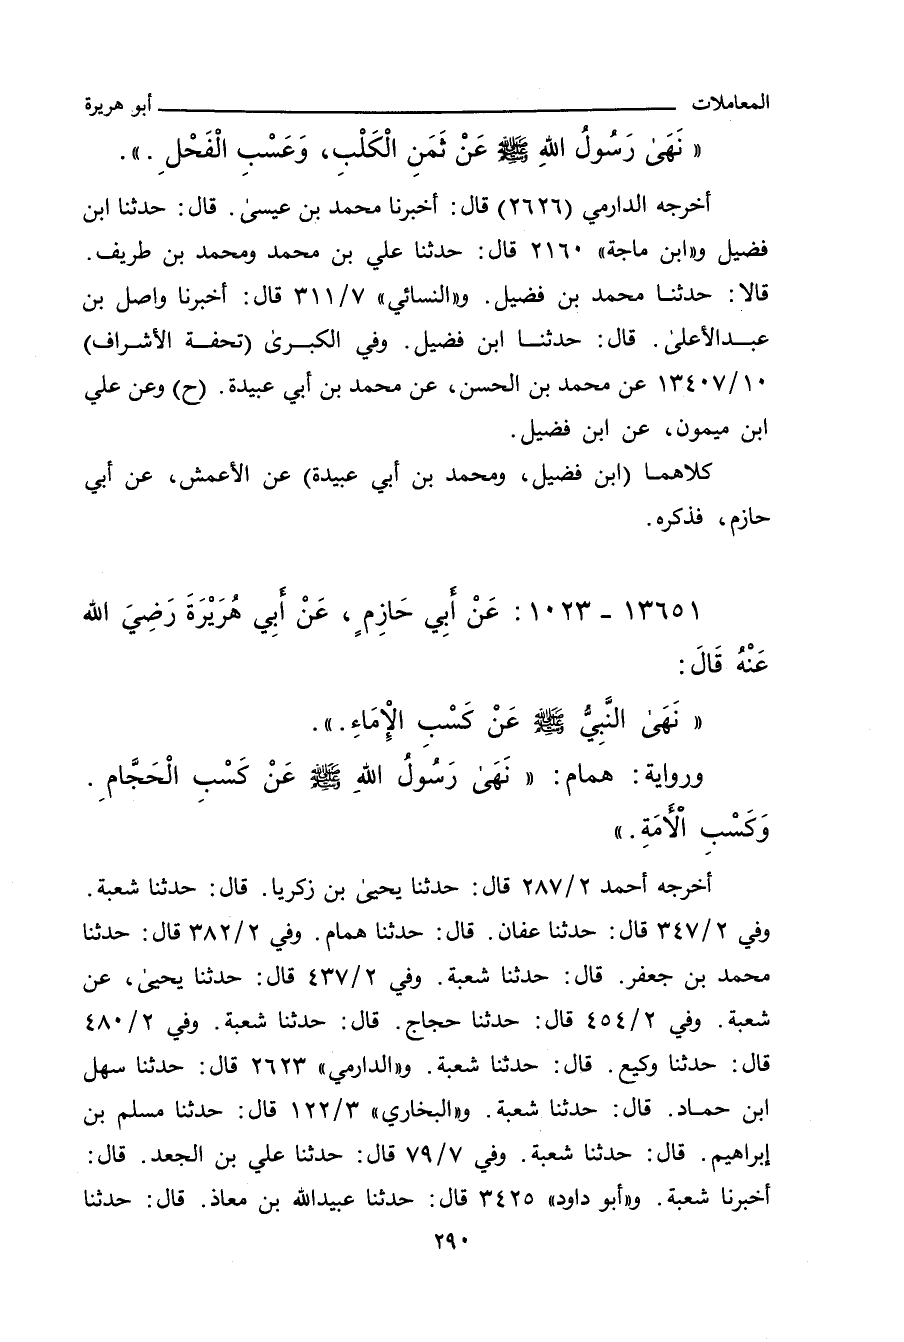 المعاملات ــــــــــــــــــــــــــــــ أبو هريرة
« نَهَىٰ رَسُولُ اللهِ ﷺ عَنْ ثَمَنِ الْكَلْبِ، وَعَسْبِ الْفَحْلِ . ».
أخرجه الدارمي (٢٦٢٦) قال: أخبرنا محمد بن عيسىٰ. قال: حدثنا ابن
فضيل و«ابن ماجة» ٢١٦٠ قال: حدثنا علي بن محمد ومحمد بن طريف.
قالا: حدثنا محمد بن فضيل. و«النسائي» ٣١١/٧ قال: أخبرنا واصل بن
عبدالأعلىٰ. قال: حدثنا ابن فضيل. وفي الكبرىٰ (تحفة الأشراف)
١٣٤٠٧/١٠ عن محمد بن الحسن، عن محمد بن أبي عبيدة. (ح) وعن علي
ابن ميمون، عن ابن فضيل.
كلاهما (ابن فضيل، ومحمد بن أبي عبيدة) عن الأعمش، عن أبي
حازم، فذكره.
١٣٦٥١ - ١٠٢٣ : عَنْ أَبِي حَازِمٍ، عَنْ أَبِي هُرَيْرَةَ رَضِيَ الله
عَنْهُ قَالَ:
« نَهَىٰ النَّبِيُّ ﷺ عَنْ كَسْبِ الْإِمَاءِ. ».
ورواية: همام: « نَهَىٰ رَسُولُ اللهِ ﷺ عَنْ كَسْبِ الْحَجَّامِ .
وَكَسْبِ الْأَمَةِ. »
أخرجه أحمد ٢٨٧/٢ قال: حدثنا يحيىٰ بن زكريا. قال: حدثنا شعبة.
وفي ٣٤٧/٢ قال: حدثنا عفان. قال: حدثنا همام. وفي ٣٨٢/٢ قال: حدثنا
محمد بن جعفر. قال: حدثنا شعبة. وفي ٤٣٧/٢ قال: حدثنا يحيىٰ، عن
شعبة. وفي ٤٥٤/٢ قال: حدثنا حجاج. قال: حدثنا شعبة. وفي ٤٨٠/٢
قال: حدثنا وكيع. قال: حدثنا شعبة. و«الدارمي» ٢٦٢٣ قال: حدثنا سهل
ابن حماد. قال: حدثنا شعبة. و«البخاري» ١٢٢/٣ قال: حدثنا مسلم بن
إبراهيم. قال: حدثنا شعبة. وفي ٧٩/٧ قال: حدثنا علي بن الجعد. قال:
أخبرنا شعبة. و«أبو داود» ٣٤٢٥ قال: حدثنا عبيدالله بن معاذ. قال: حدثنا
٢٩٠